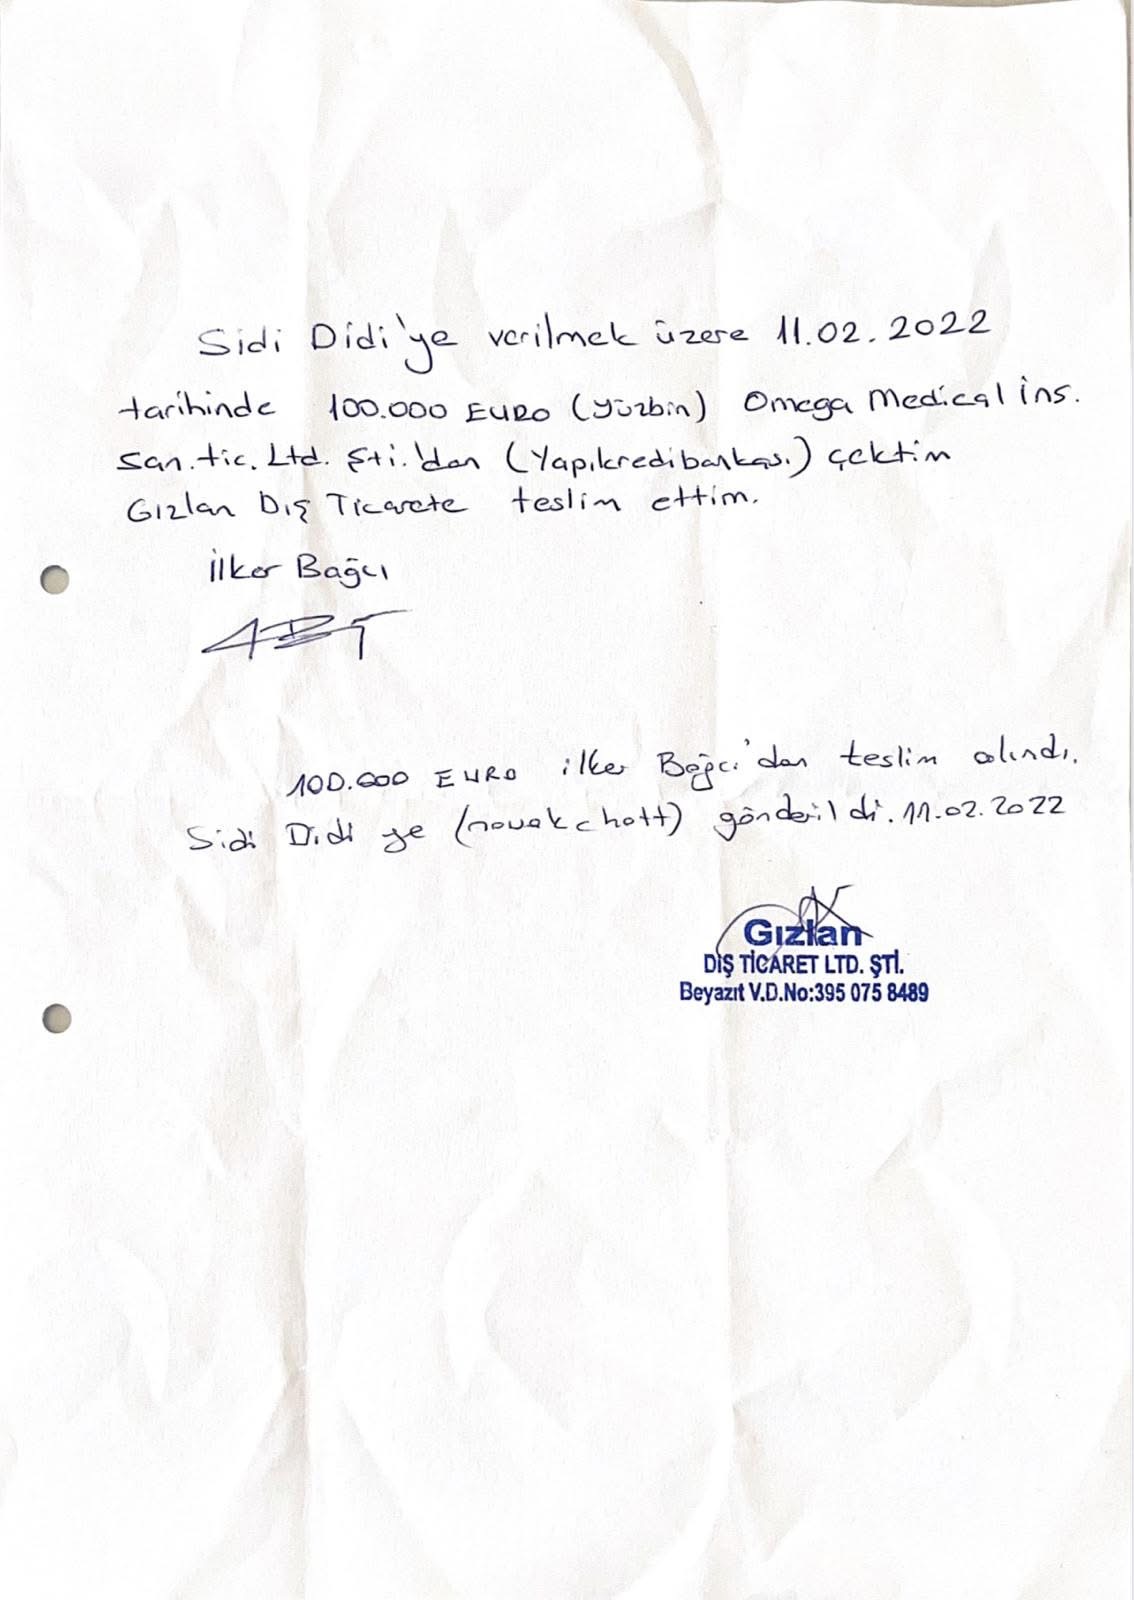 Sidi Didi'ye verilmek üzere 11.02.2022
tarihinde 100.000 EURO (yüzbin) Omega Medical İns.
San.tic. Ltd. Şti.'dan (Yapıkredibankası) çektim
Gızlan Dış Ticarete teslim ettim.
İlker Bağcı
100.000 EURO ilker Bağcı'dan teslim alındı.
Sidi Didi ye (novakchott) gönderildi. 11.02.2022
Gızlan
DIŞ TİCARET LTD. ŞTİ.
Beyazıt V.D.No:395 075 8489